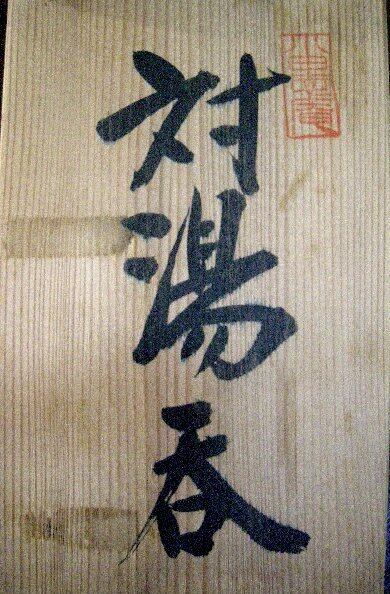 対湯呑